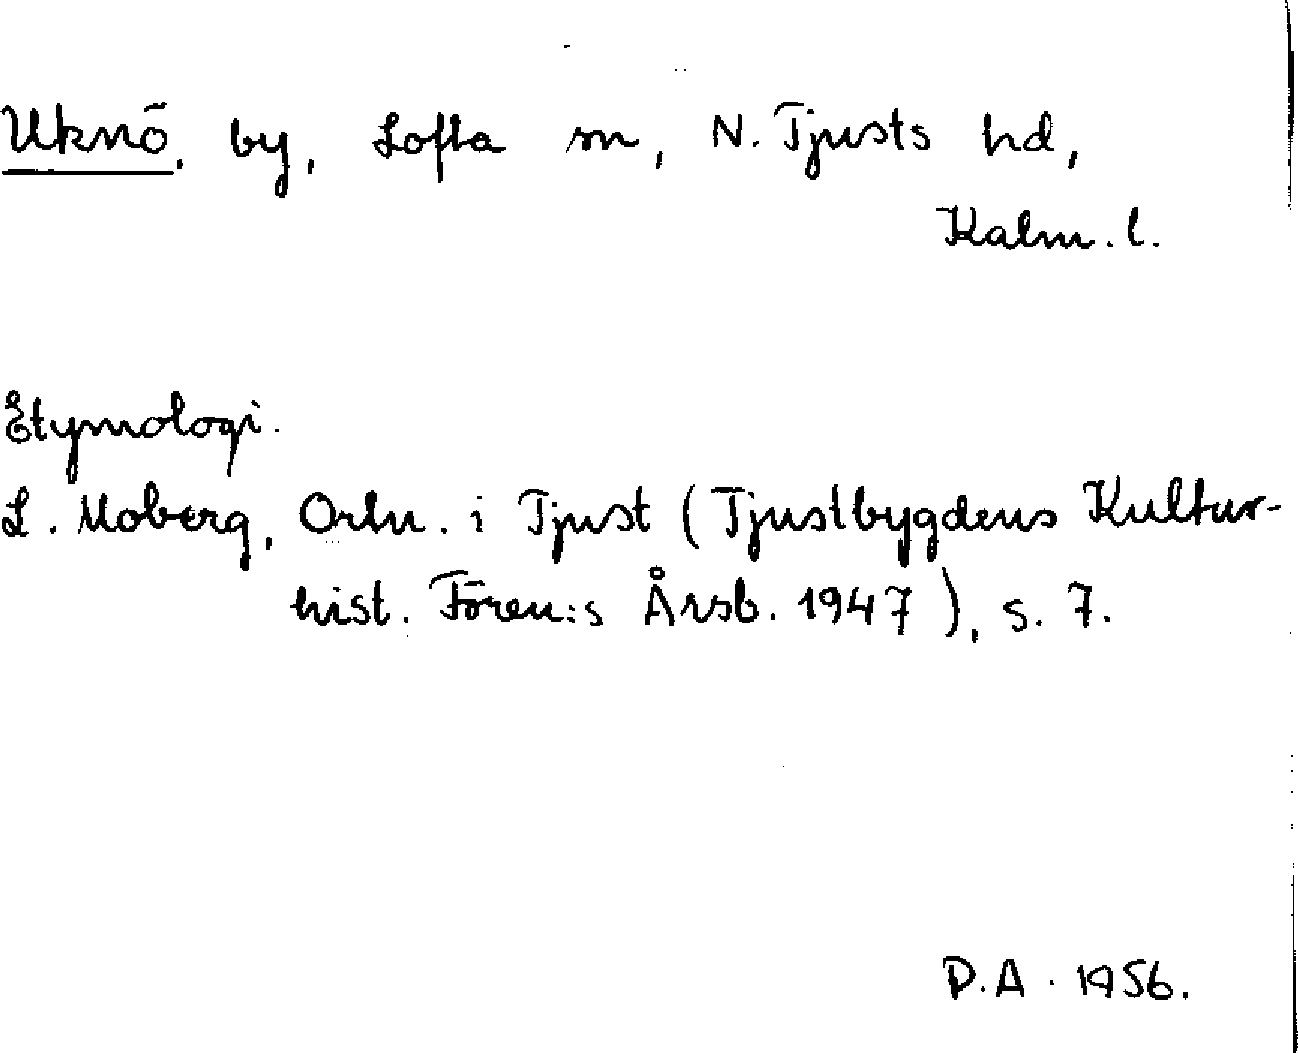 Uknö, by, Lofta sn, N. Tjusts hd,
Kalm. l.
Etymologi.
L. Moberg, Ortn. i Tjust (Tjustbygdens Kultur-
hist. Fören:s Årsb. 1947), s. 7.
D.A. 1956.